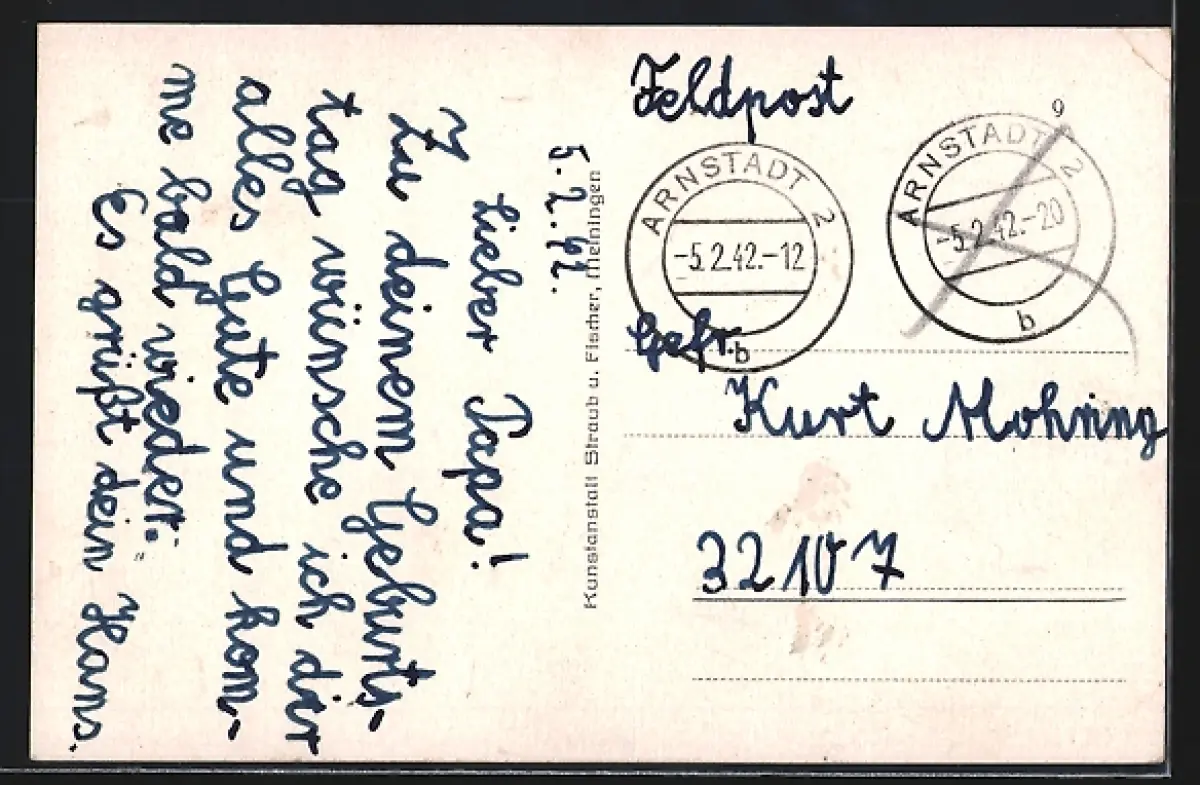 5.2.42.
Lieber Papa!
Zu deinem Geburts-
tag wünsche ich dir
alles Gute und kom-
me bald wieder.
Es grüßt dein Hans.
Kunstanstalt Straub u. Fischer, Meiningen
Feldpost
ARNSTADT 2
-5.2.42.-12
b
9
ARNSTADT 2
-5.2.42.-20
b
Gefr.
Kurt Mohring
32107